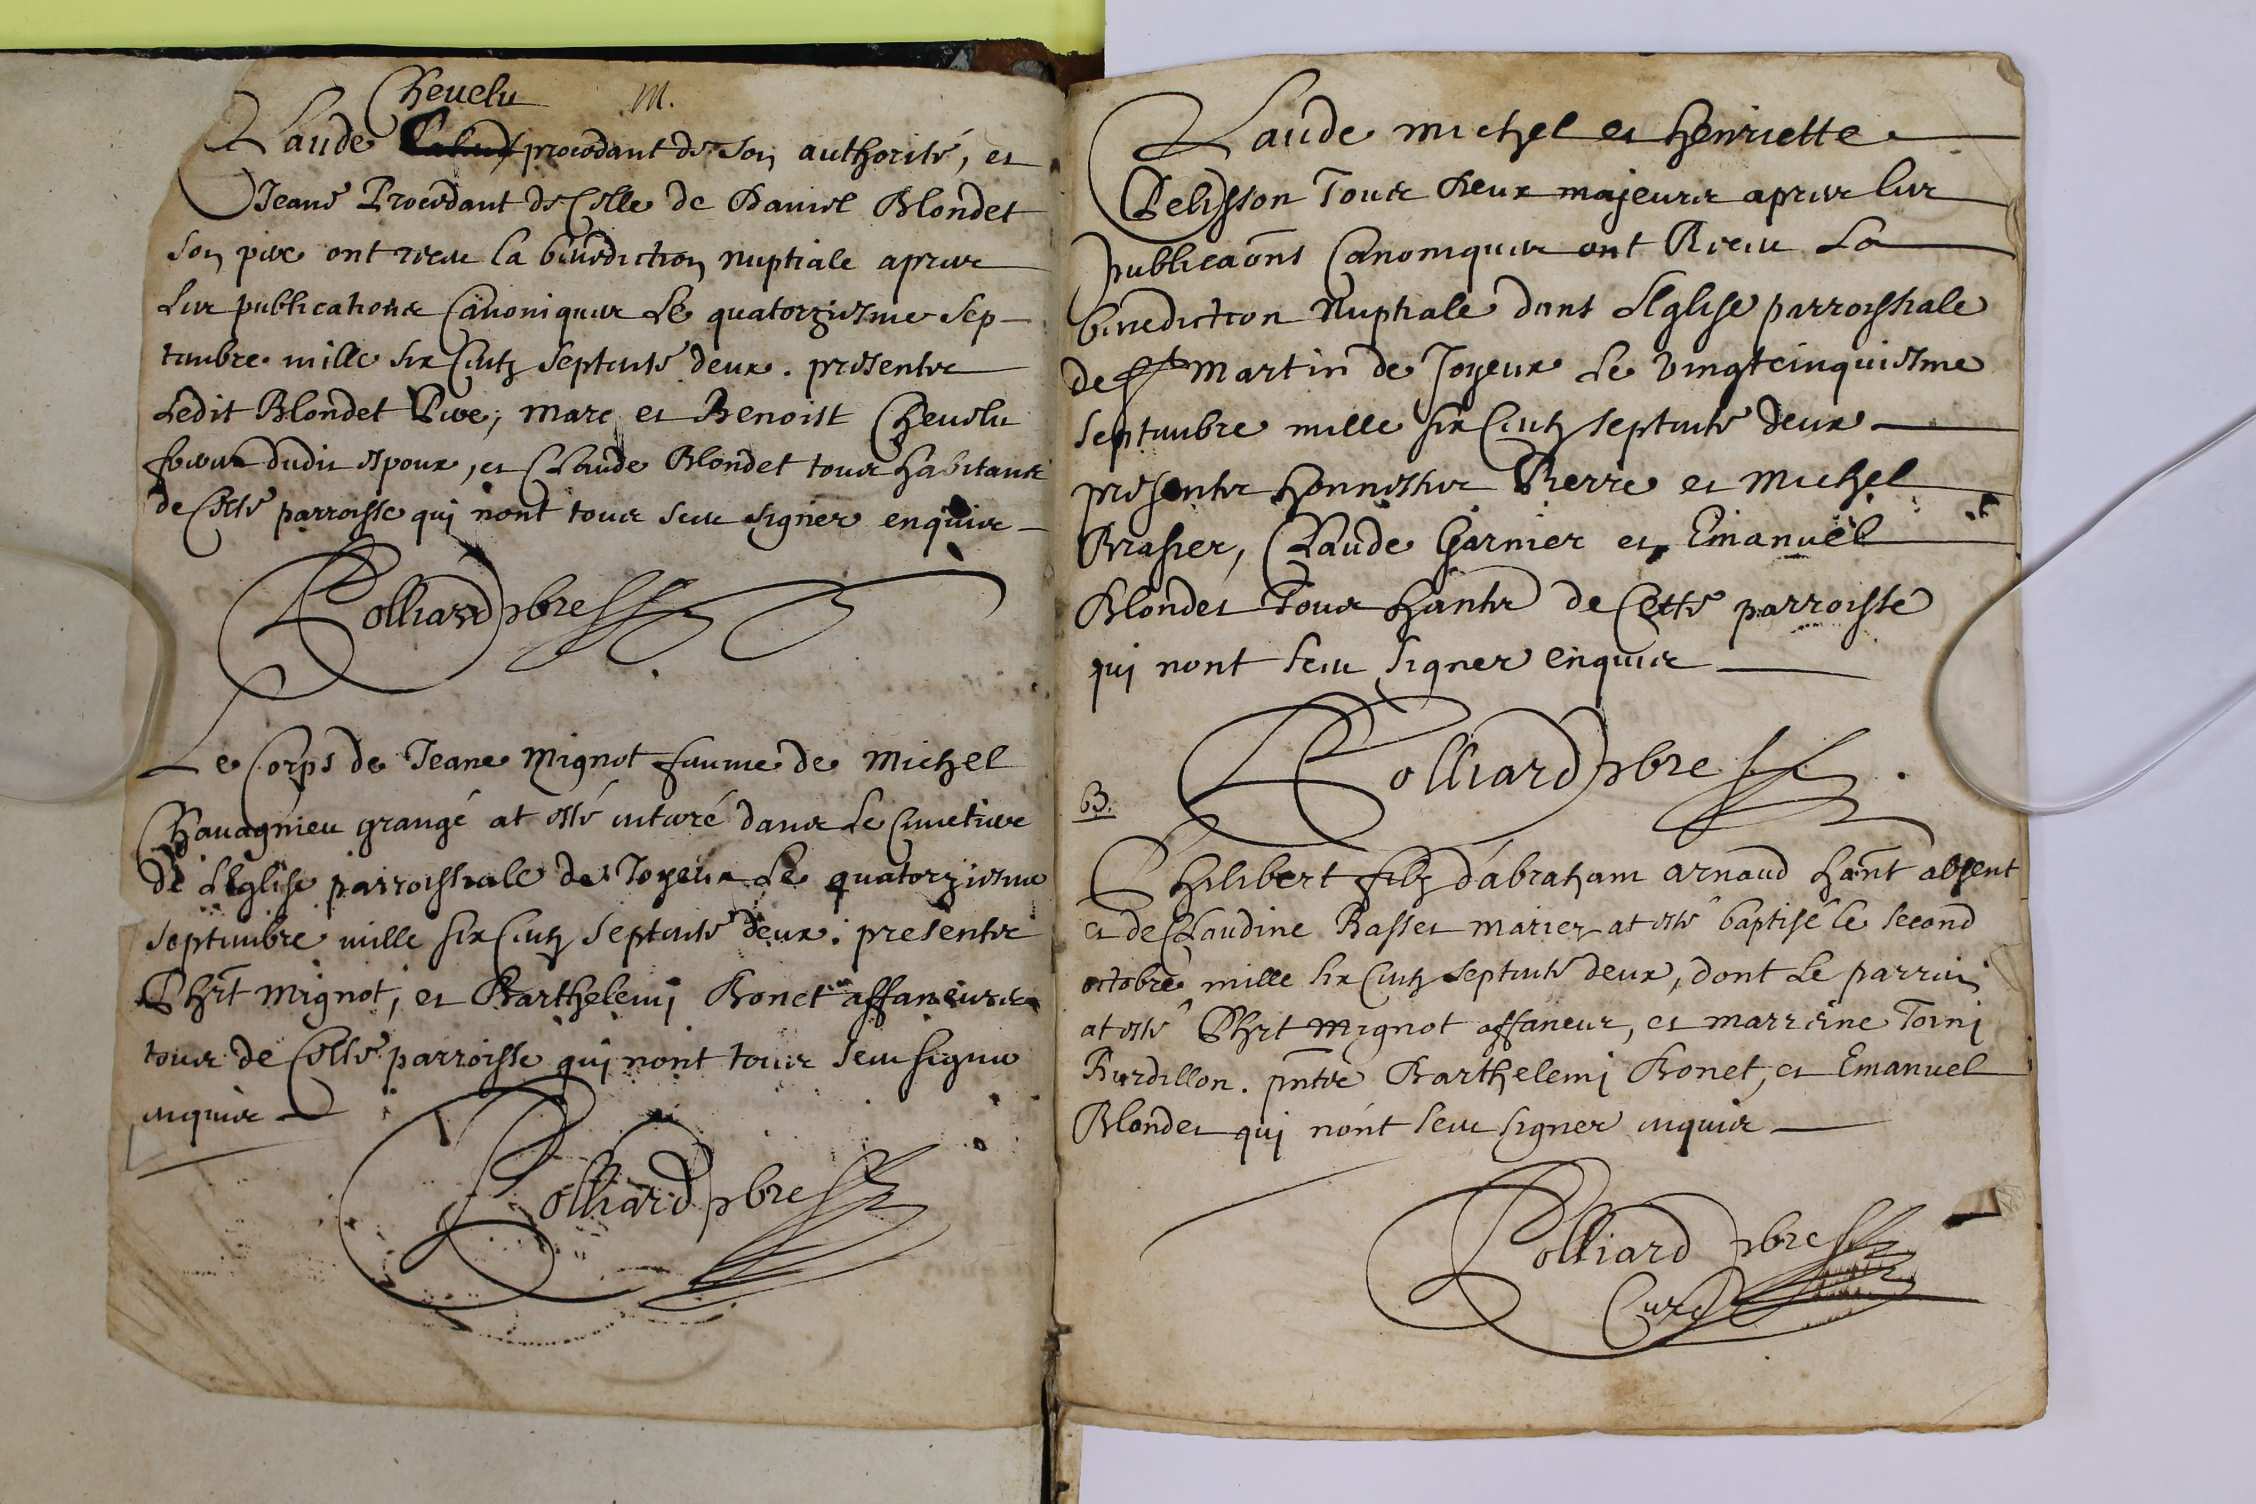 Cheuelu M.
Claude procedant de son authorité, et
Jeane Procedant de Celle de Daniel Blondet
son pere ont receu la benediction nuptiale apres
leur publications Canoniques Le quatorziesme sep-
tembre mille six Centz septente deux. presentz
Ledit Blondet Pere, Marc et Benoist Cheuelu
freres dudit espoux, et Claude Blondet tous habitants
de Ceste parroisse qui nont tous seeu signer enquis
Rolliard pbre
Le Corps de Jeane Mignot femme de Michel
Chauagnieu grangé at esté enterré dans Le Cimetiere
de L'Eglise parroissiale de Joyeux Le quatorziesme
septembre mille six Centz septente deux. presentz
Phrt Mignot, et Barthelemj Bonet affaneurs
tous de Ceste parroisse qui nont tous seeu signer
enquis
Rolliard pbre
Claude Michel et Henriette
Pelisson Tous deux majeurs apres leur
publicaõns Canoniques ont Receu La
benediction Nuptiale dans L'Eglise parroissiale
de St Martin de Joyeux Le vingtcinquiesme
septembre mille six Centz septente deux
presentz honnestes Pierre et Michel
Brasier, Claude Garnier et Emanuël
Blondet Tous hãntz de Cette parroisse
qui nont seeu signer enquis
Rolliard pbre
B.
Philibert filz d'abraham arnaud hãnt absent
et de Claudine Basset mariez at esté baptisé le second
octobre mille six Centz septente deux, dont Le parrin
at esté Phrt Mignot affaneur, et marreine Toini
Burdillon. pñtz Barthelemj Bonet, et Emanuel
Blondet qui nont seeu signer enquis
Rolliard pbre
Curé